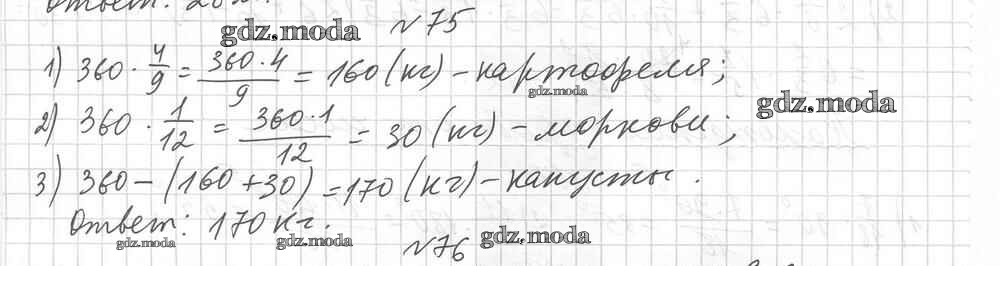 Ответ:
gdz.moda
№75
1) 360 · 4/9 = 360·4/9 = 160 (кг) – картофеля;
gdz.moda
gdz.moda
2) 360 · 1/12 = 360·1/12 = 30 (кг) – моркови;
3) 360 – (160 + 30) = 170 (кг) – капусты.
Ответ: 170 кг.
gdz.moda
gdz.moda
gdz.moda
№76